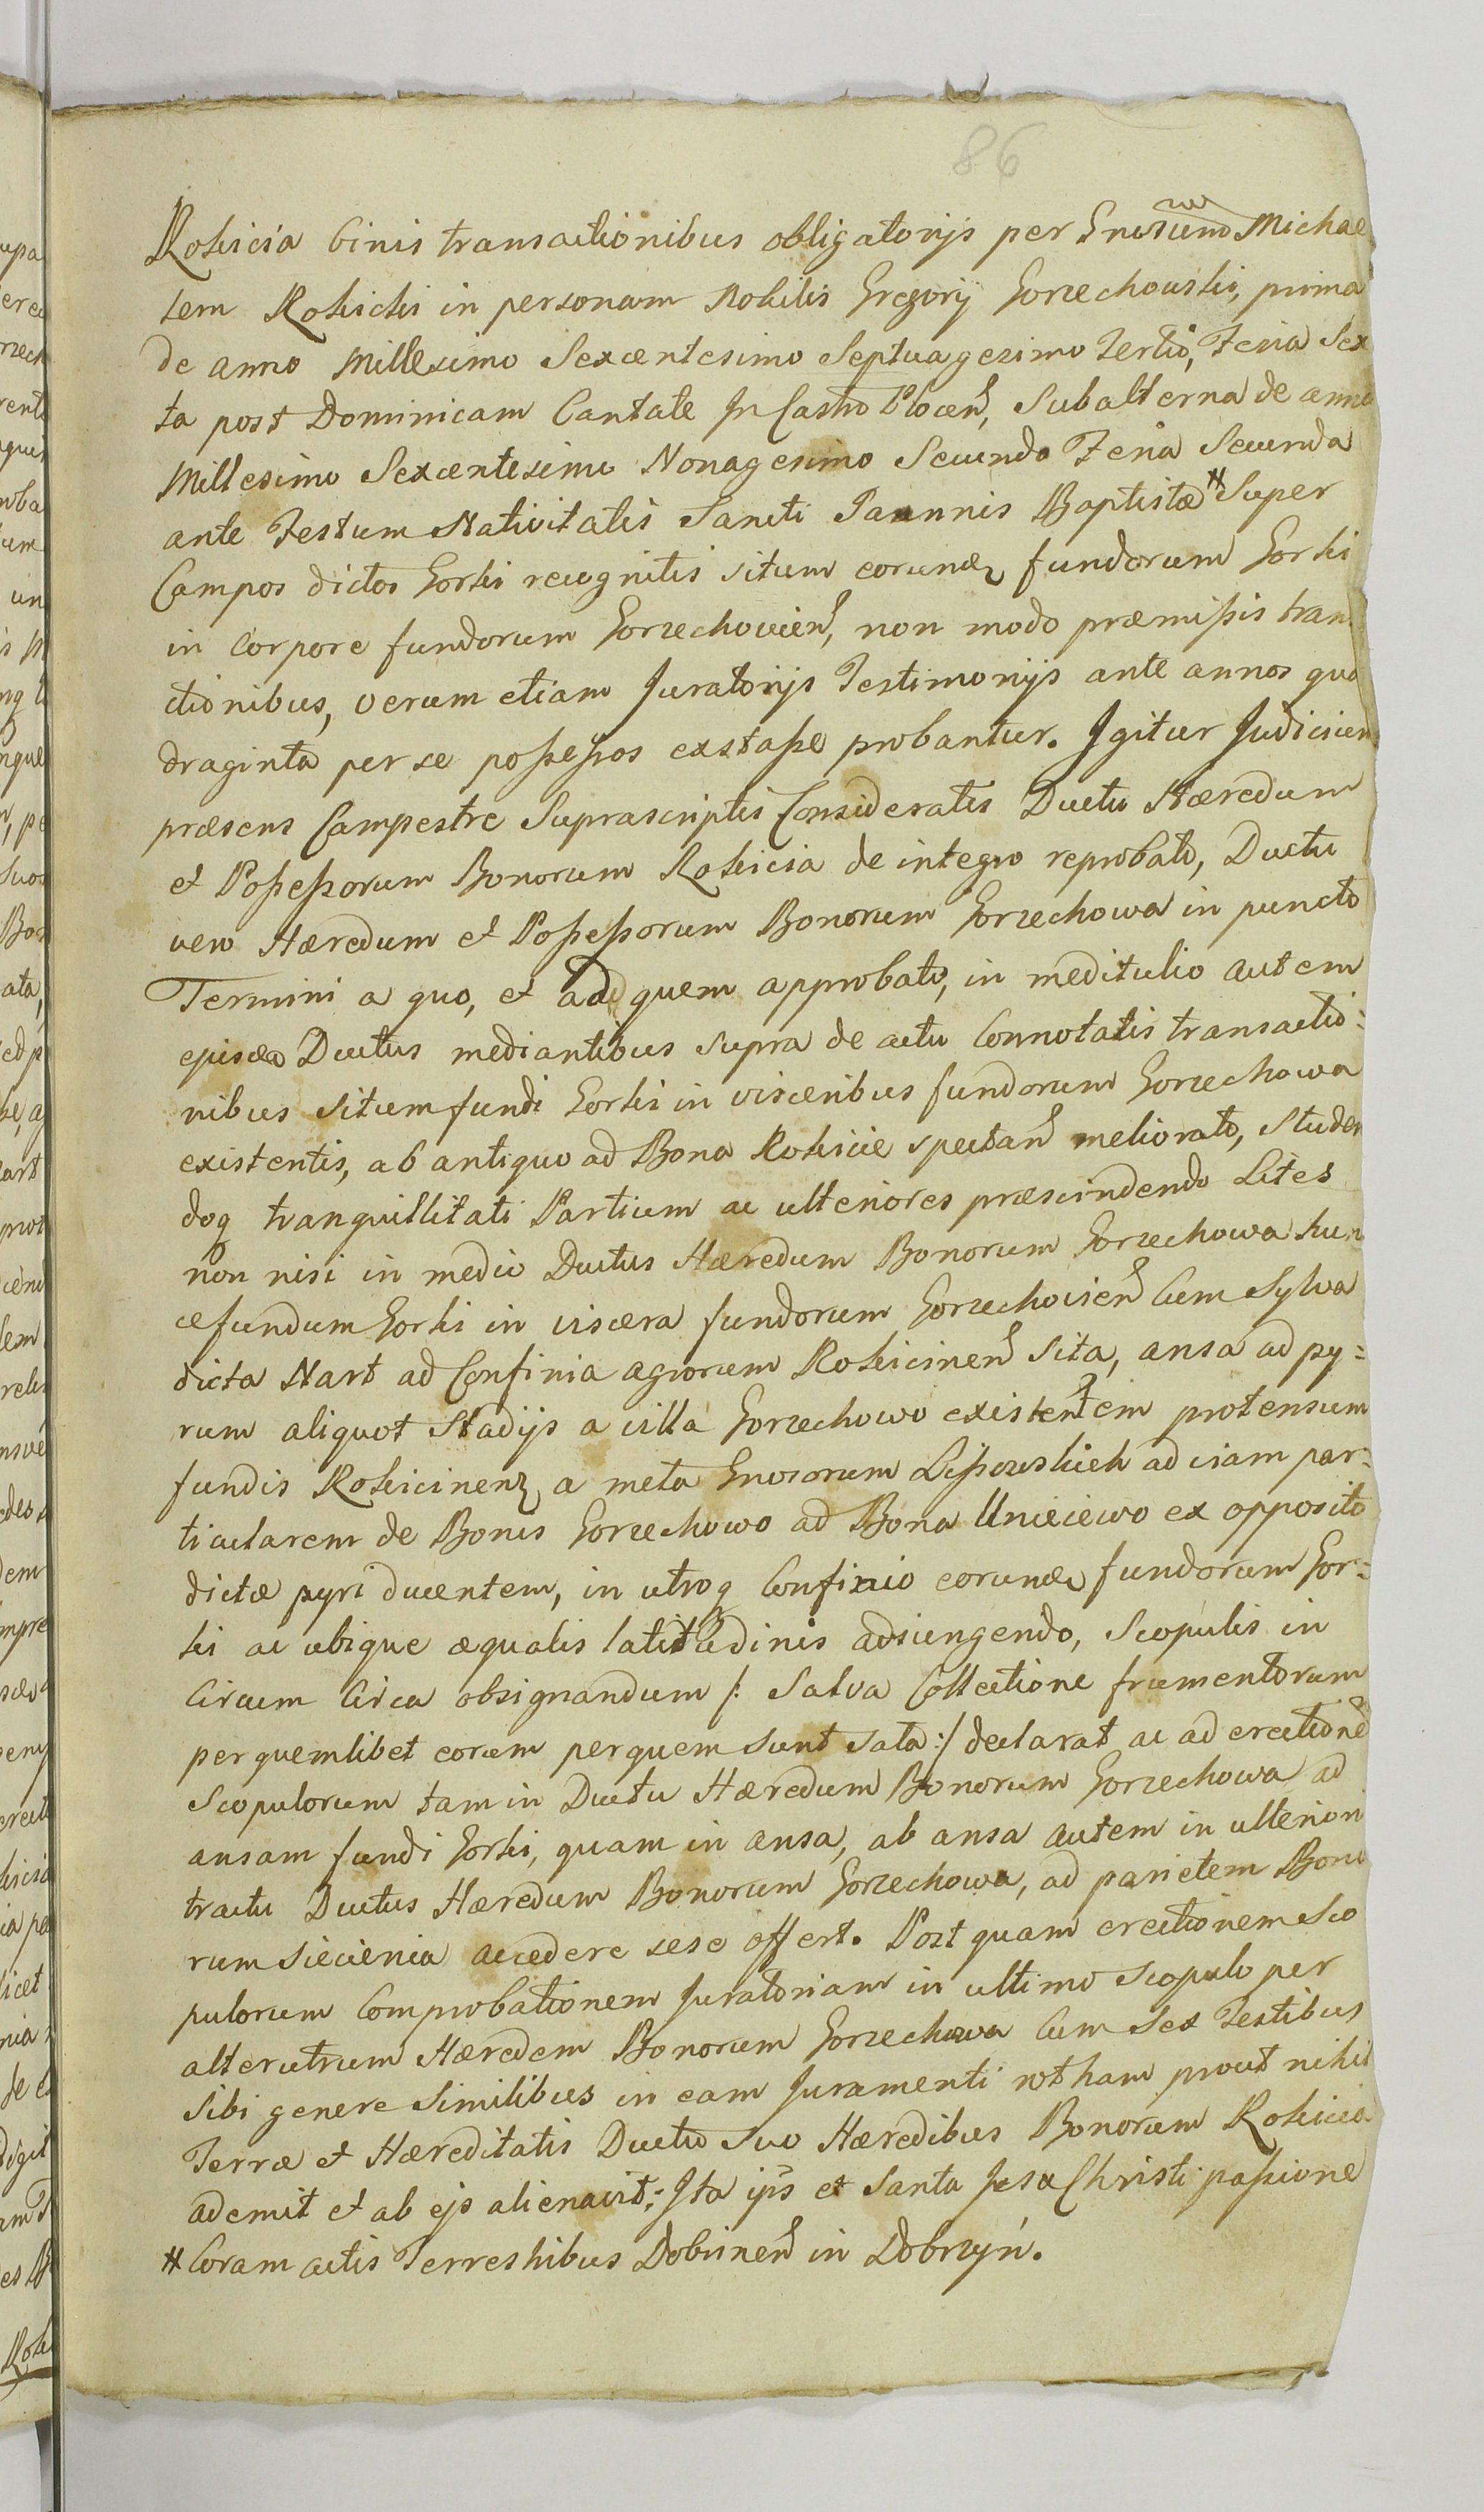 86
Rokicia binis transactionibus obligatorijs per Gnrosum Michae
lem Rokicki in personam Nobilis Gregorij Gorzechowski, prima
de anno Millesimo Sexcentesimo Septuagesimo Tertio, Feria Sex
ta post Dominicam Cantate In Castro Plocen, Subalterna de anno
Millesimo Sexcentesimo Nonagesimo Secundo Feria Secunda
ante Festum Nativitatis Sancti Joannis Baptistæ # Super
Campos dictos Gorki recognitis situm eorund fundorum Gorki
in Corpore fundorum Gorzechovien, non modo præmissis trans
ctionibus, verum etiam Juratorijs Testimonijs ante annos qua
draginta per se possessos exstasse probantur. Igitur Judicium
præsens Campestre Suprascriptis Consideratis Ductu Hæredum
et Possessorum Bonorum Rokicia de integro reprobato, Ductu
vero Hæredum et Possessorum Bonorum Gorzechowa in puncto
Termini a quo, et ad quem approbato, in meditulio autem
ejusd Ductus mediantibus supra de actu Connotatis transactio:
nibus situm fundi Gorki in visceribus fundorum Gorzechowa
existentis, ab antiquo ad Bona Rokicie spectan meliorato, studen
doq tranquillitati Partium ac ulteriores præscindendo Lites
non nisi in medio Ductus Hæredum Bonorum Gorzechowa hun
ce fundum Gorki in viscera fundorum Gorzechovien Cum Sylva
dicta Nart ad Confinia agrorum Rokicinen Sita, ansa ad py=
rum aliquot Stadijs a villa Gorzechowo existentem protensum
fundis Rokicinen a meta Gnrosorum Lissowskich ad viam par=
ticularem de Bonis Gorzechowo ad Bona Unieiewo ex opposito
dictæ pyri ducentem, in utroq Confinio eorund fundorum Gor=
ki ac ubique æqualis latitudinis adjungendo, Scopulis in
Circum Circa obsignandum /: Salva Collectione frumentorum
per quemlibet eorum per quem sunt sata :/ declarat ac ad erectione
Scopulorum tam in Ductu Hæredum Bonorum Gorzechowa ad
ansam fundi Gorki, quam in ansa, ab ansa autem in ulteriori
tractu Ductus Hæredum Bonorum Gorzechowa, ad parietem Bono
rum Siecienia accedere sese offert. Post quam erectionem Sco
pulorum Comprobationem Juratoriam in ultimo Scopulo per
alterutrum Hæredem Bonorum Gorzechowa Cum Sex Testibus
Sibi genere Similibus in eam Juramenti rotham prout nihil
Terræ et Hæreditatis Ductu Suo Hæredibus Bonorum Rokicia
ademit et ab ejs alienavit; Ita ips et Santa Jesu Christi passione
# Coram actis Terrestribus Dobrinen in Dobrzyń.